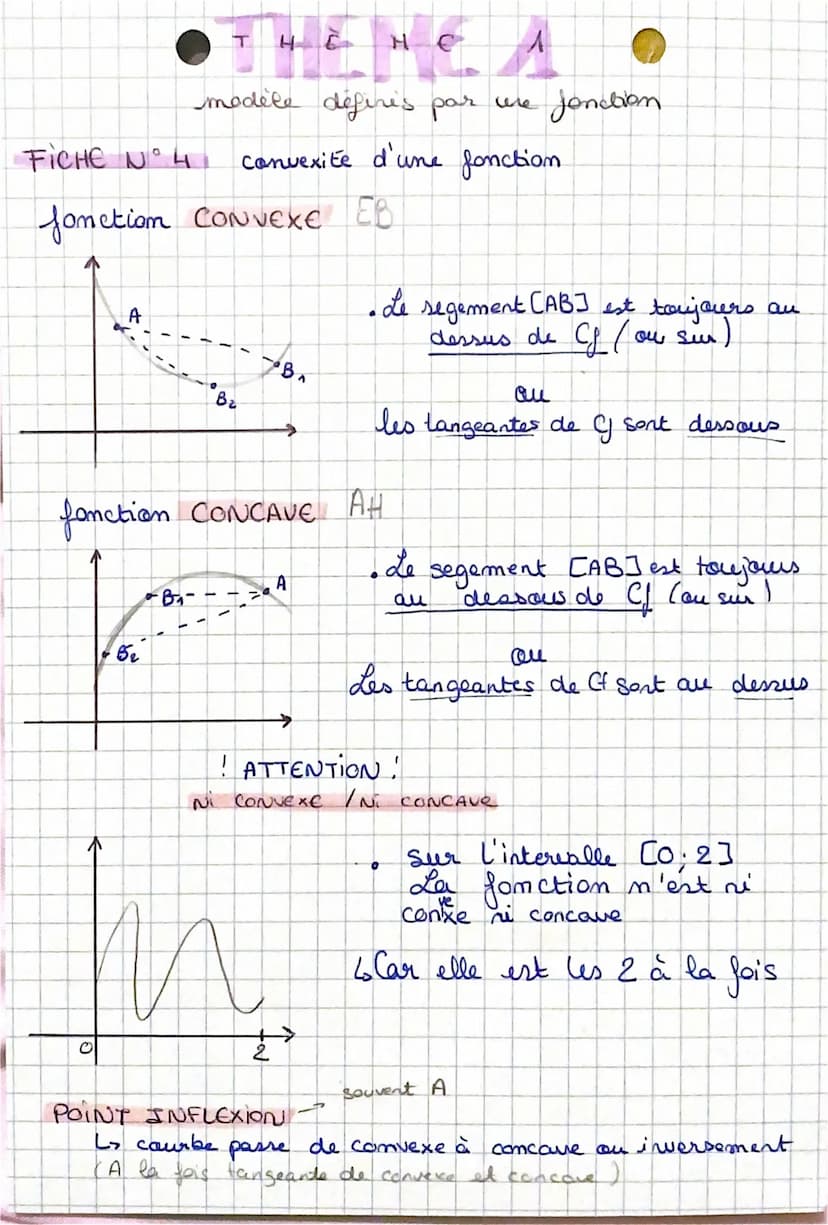 THÈME 1
modèle définis par une fonction
FICHE N° 4 convexité d'une fonction
fonction CONVEXE EB
A
B1
B2
. Le segement [AB] est toujours au
dessus de Cf (ou sur)
ou
les tangeantes de Cf sont dessous
fonction CONCAVE AH
A
B1
B2
. Le segement [AB] est toujours
au dessous de Cf (ou sur)
ou
Les tangeantes de Cf sont au dessus
! ATTENTION !
Ni CONVEXE / Ni CONCAVE
0
2
. Sur l'intervalle [0;2]
La fonction n'est ni
convexe ni concave
↳ Car elle est les 2 à la fois
souvent A
POINT INFLEXION →
↳ courbe passe de convexe à concave ou inversement
(A la fois tangeande de convexe et concave)